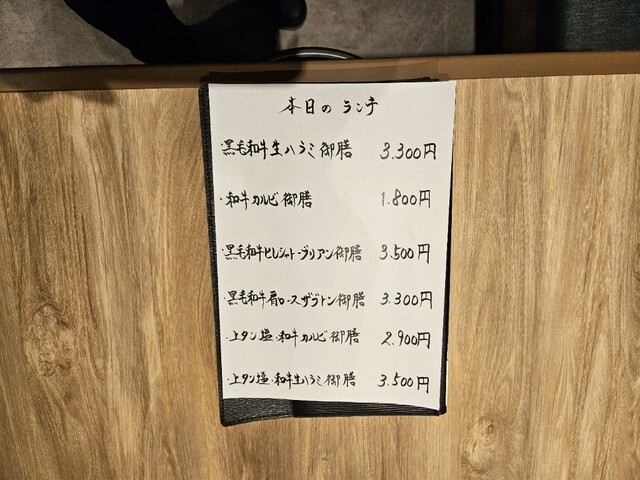 本日のランチ
・黒毛和牛生ハラミ御膳 3.300円
・和牛カルビ御膳 1.800円
・黒毛和牛ヒレシャトーブリアン御膳 3.500円
・黒毛和牛肩ロースザブトン御膳 3.300円
・上タン塩・和牛カルビ御膳 2.900円
・上タン塩・和牛生ハラミ御膳 3.500円